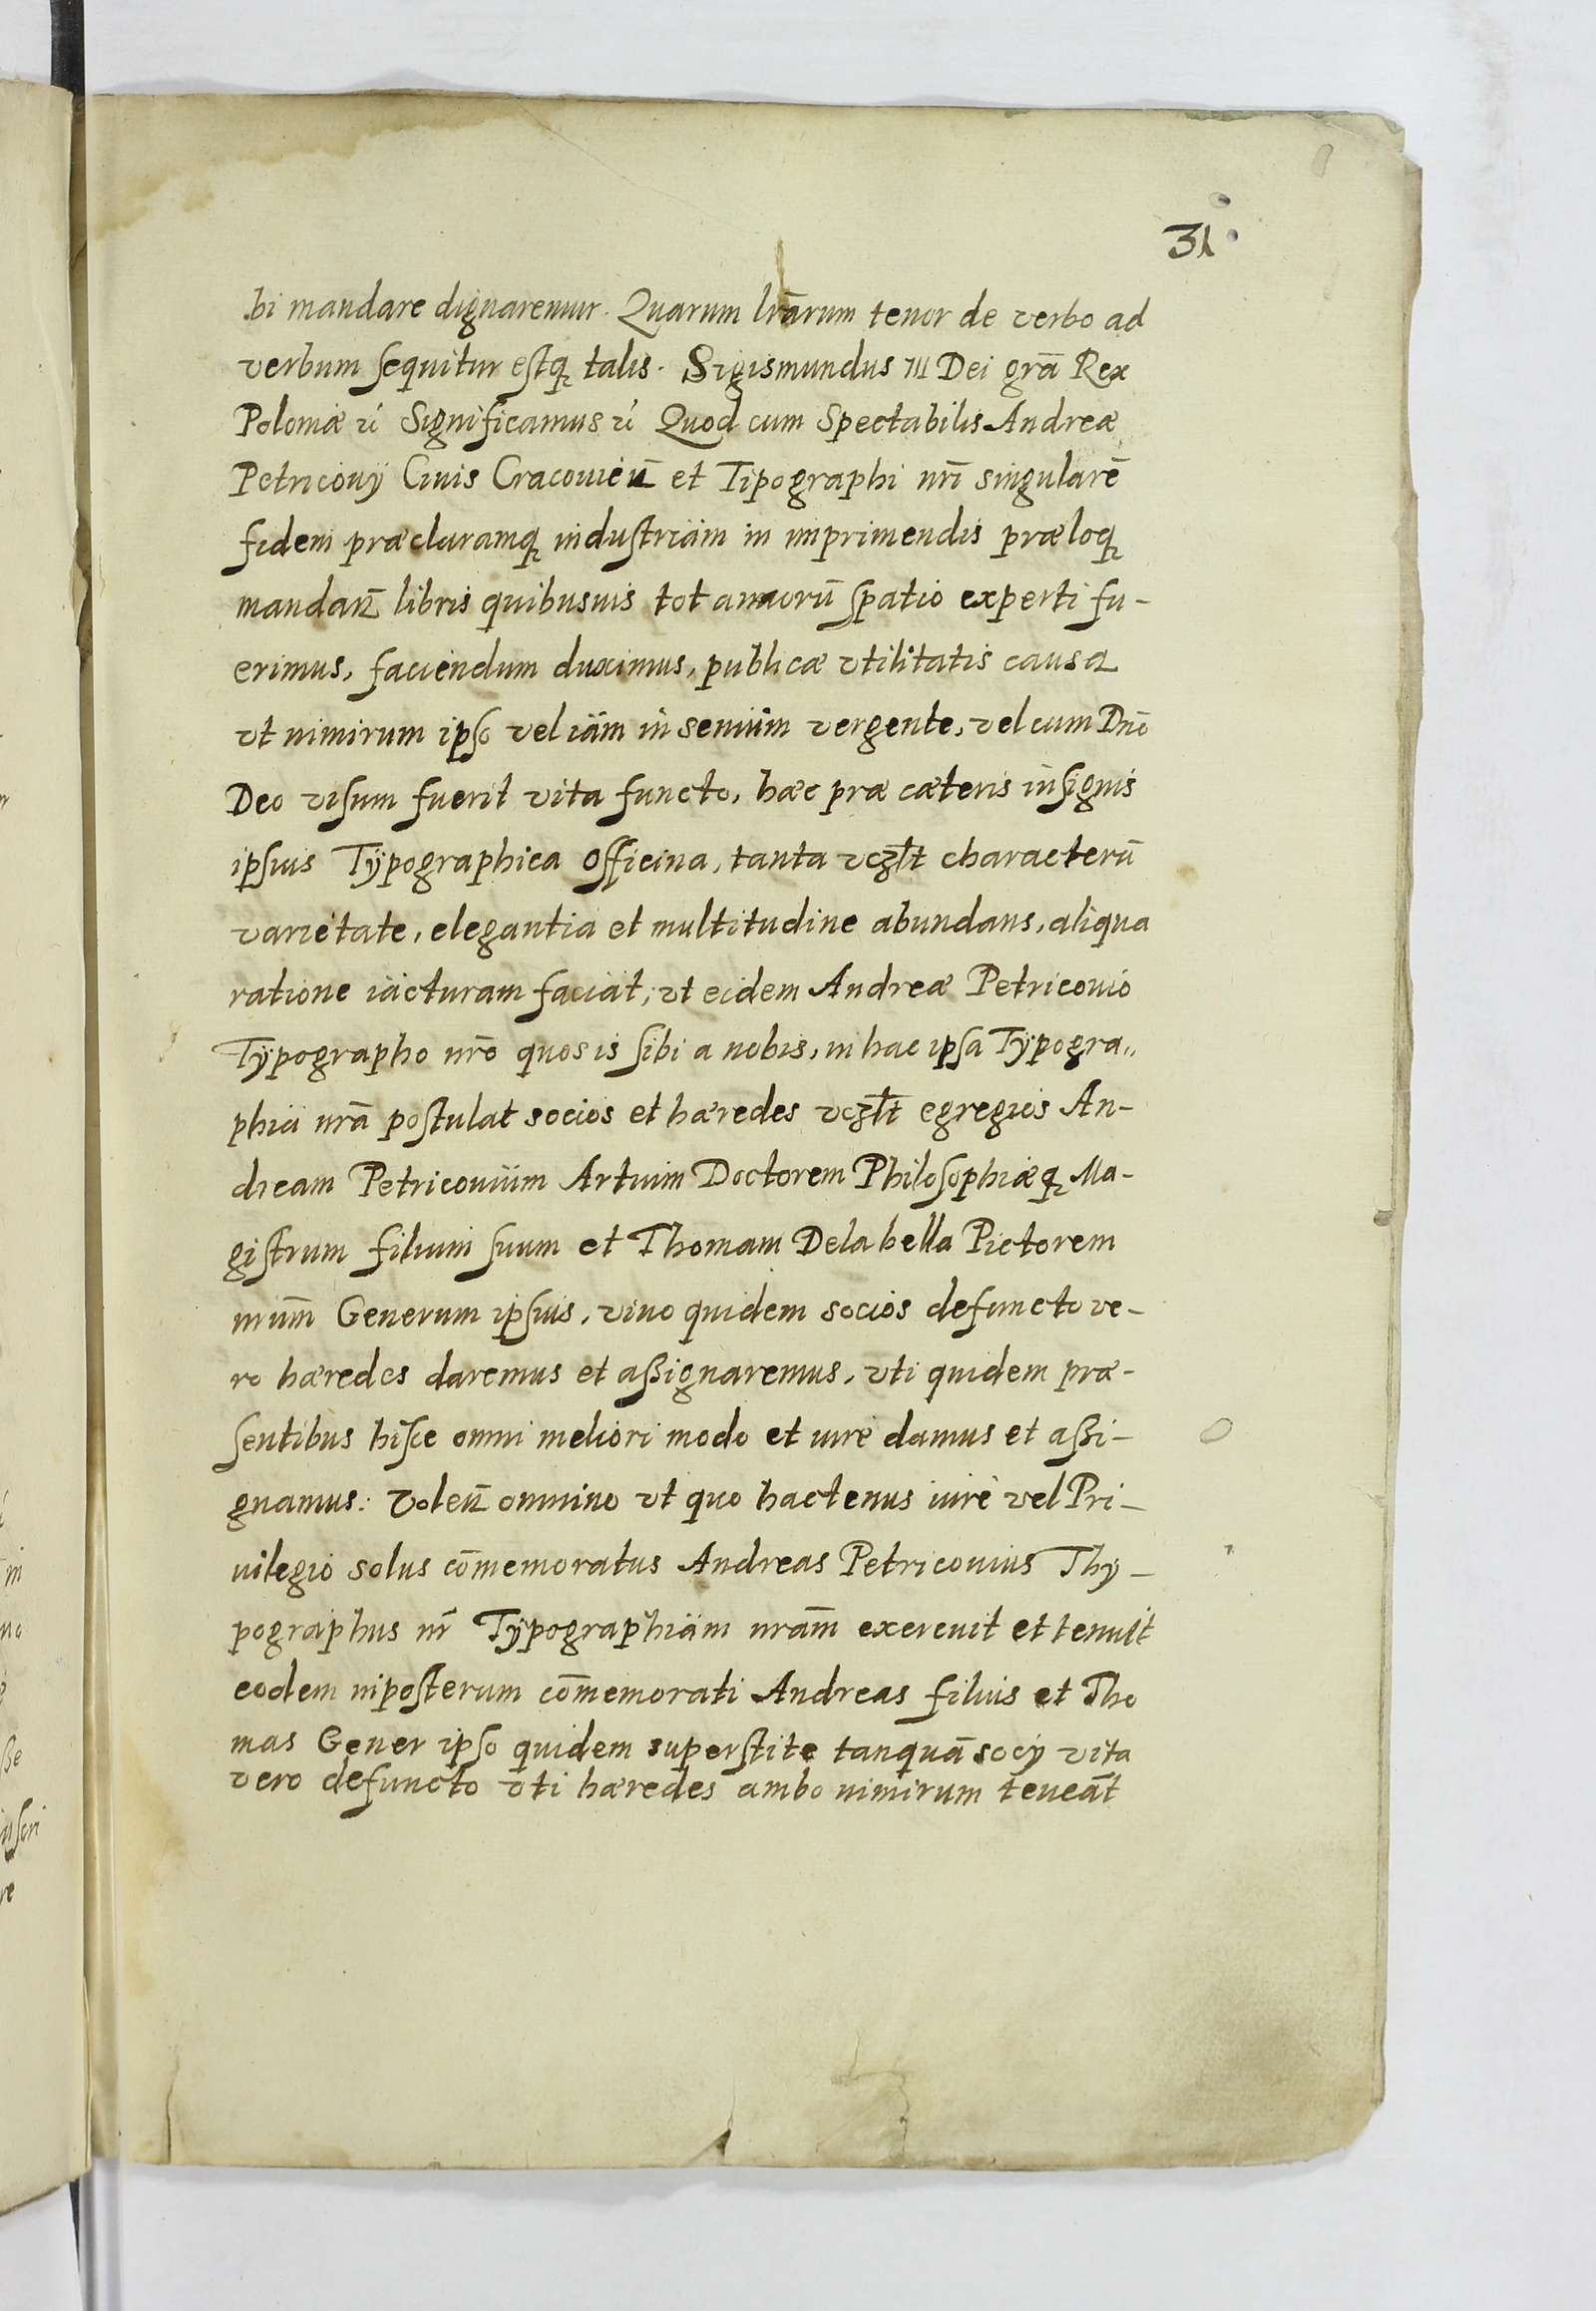 31
bi mandare dignaremur. Quarum lrārum tenor de verbo ad
verbum sequitur estq; talis. Sigismundus III Dei grā Rex
Poloniæ &c Significamus &c Quod cum Spectabilis Andreæ
Petricovij Civis Cracovień et Tipographi nrī singularē
fidem præclaramq; industriam in imprimendis præloq;
mandan̄ libris quibusuis tot annorū spatio experti fu-
erimus, faciendum duximus, publicæ vtilitatis causa
vt nimirum ipso vel iam in senium vergente, vel cum Dno
Deo visum fuerit vita functo, hæc præ cæteris insignis
ipsius Typographica Officina, tanta vczlt characterū
varietate, elegantia et multitudine abundans, aliqua
ratione iacturam faciat, vt eidem Andreæ Petricouio
Typographo nrō quos is sibi a nobis, in hac ipsa Typogra„
phia nrā postulat socios et hæredes vczlt egregios An-
dream Petricouium Artium Doctorem Philosophiæq; Ma-
gistrum filium suum et Thomam Dela bella Pictorem
nrum̄ Generum ipsius, viuo quidem socios defuncto ve-
ro hæredes daremus et aßignaremus, vti quidem præ-
sentibus hisce omni meliori modo et iure damus et aßi-
gnamus: Volen̄ omnino vt quo hactenus iure vel Pri-
uilegio solus cōmemoratus Andreas Petricouius Thy-
pographus nr̄ Typographiam nram̄ exercuit et tenuit
eodem inposterum cōmemorati Andreas filius et Tho
mas Gener ipso quidem superstite tanquā socij vita
vero defuncto vti hæredes ambo nimirum teneāt